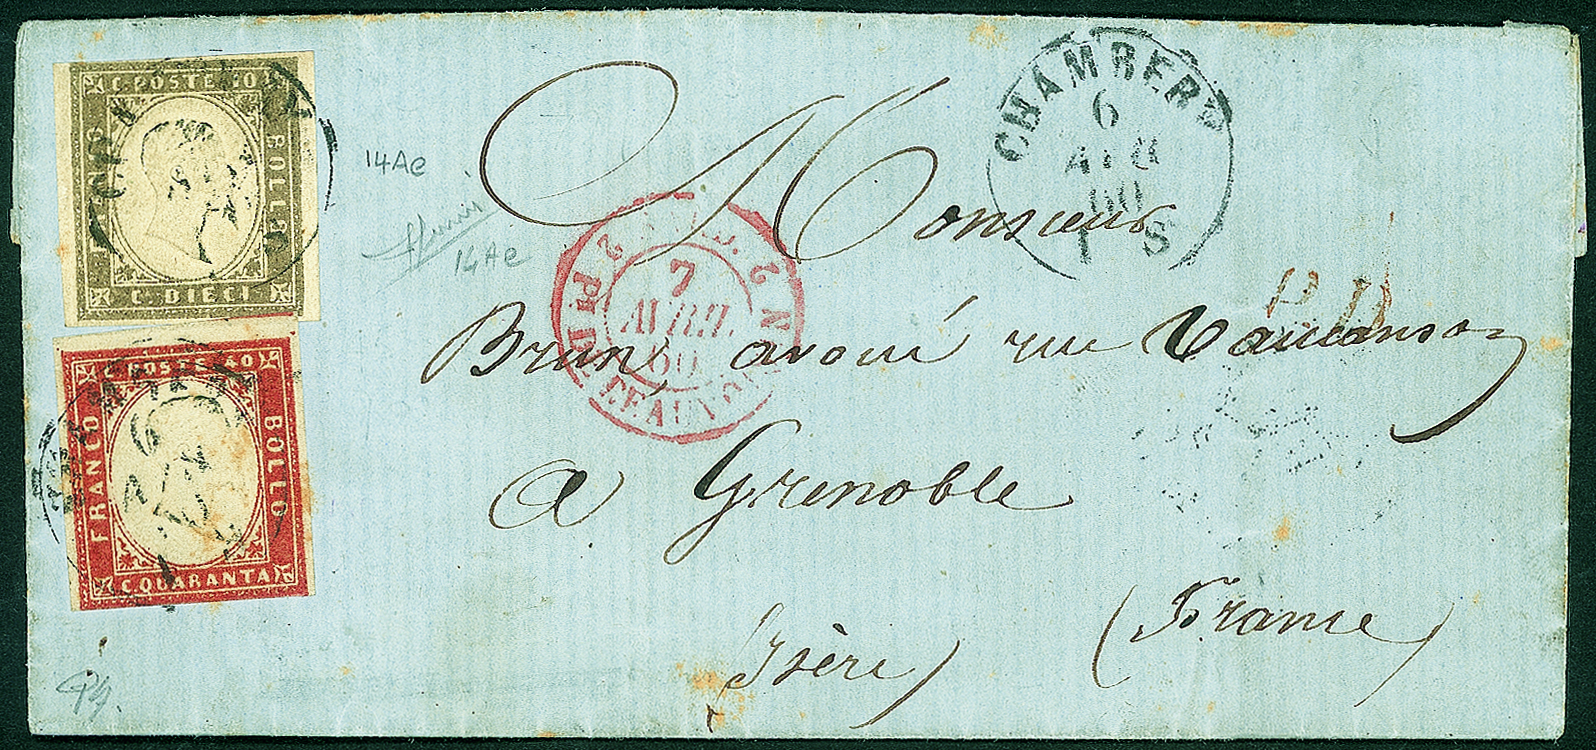 C. POSTE 10
BOLLO
C. DIECI
C. POSTE 40
FRANCO
BOLLO
C. QUARANTA
14Ae
14Ae
CHAMBERY
6
60
1 S
2
2
7
AVRIL
60
P.D.
Monsieur
Brun, avoué rue Vaucanson
a Grenoble
Isère)
(France)